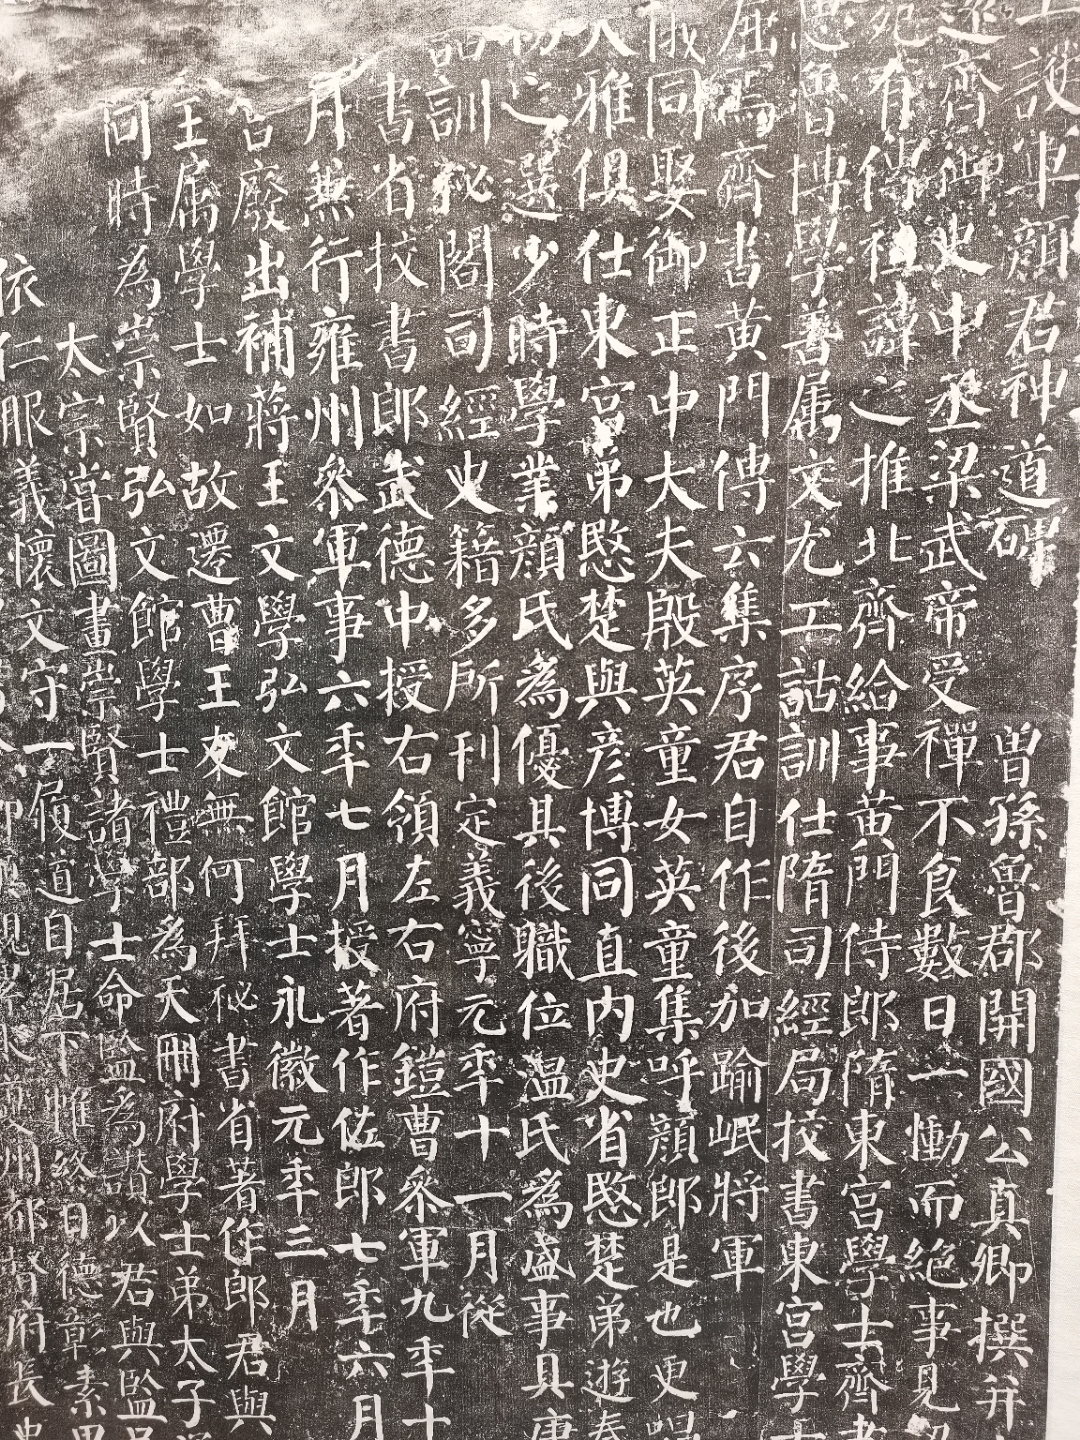 上護軍顏君神道碑
曾孫魯郡開國公真卿撰并
逐齊御史中丞梁武帝受禪不食數日一慟而絕事見梁
宛有傳祖諱之推北齊給事黃門侍郎隋東宮學士齊書
思魯博學善屬文尤工詁訓仕隋司經局挍書東宮學士
屈焉齊書黃門傳云集序君自作後加踰岷將軍
俄同娶御正中大夫殷英童女英童集呼顏郎是也更唱
人雅俱仕東宮弟愍楚與彥博同直內史省愍楚弟遊秦
初之選少時學業顏氏為優其後職位溫氏為盛事具唐
品訓秘閣司經史籍多所刊定義寧元年十一月從
書省挍書郎武德中授右領左右府鎧曹參軍九年十
月兼行雍州參軍事六年七月授著作佐郎七年六月
宮廢出補蔣王文學弘文館學士永徽元年三月
王屬學士如故遷曹王友無何拜秘書省著作郎君與
同時為崇賢弘文館學士禮部為天冊府學士弟太子
太宗嘗圖畫崇賢諸學士命監為讚以君與監
依仁服義懷文守一履道自居下帷終日德彰素里
都督府長史